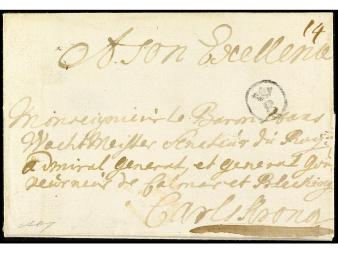 14
A Son Excellence
Monseigneur le Baron Hans
Wachtmeister Senateur du Roy:
admiral general, et general Gou
verneur de Calmar et Bleking
Carlskrona